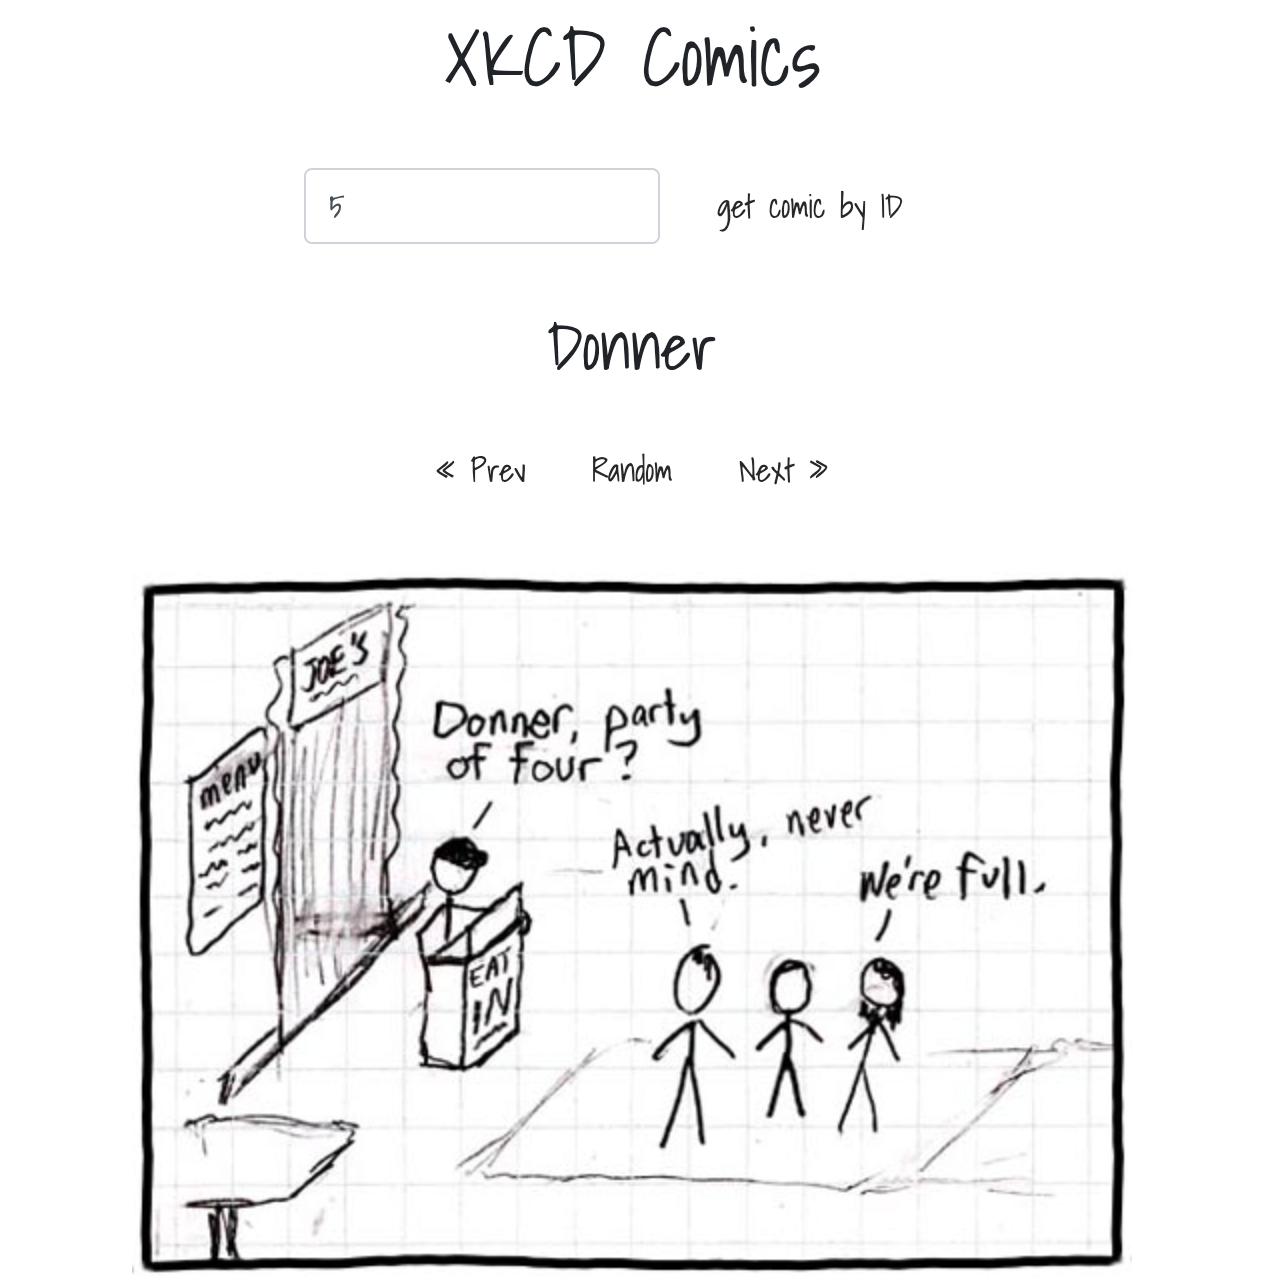 XKCD Comics
5
get comic by ID
Donner
« Prev Random Next »
JOE'S
menu
Donner, party
of four?
Actually, never
mind.
We're full.
EAT
IN